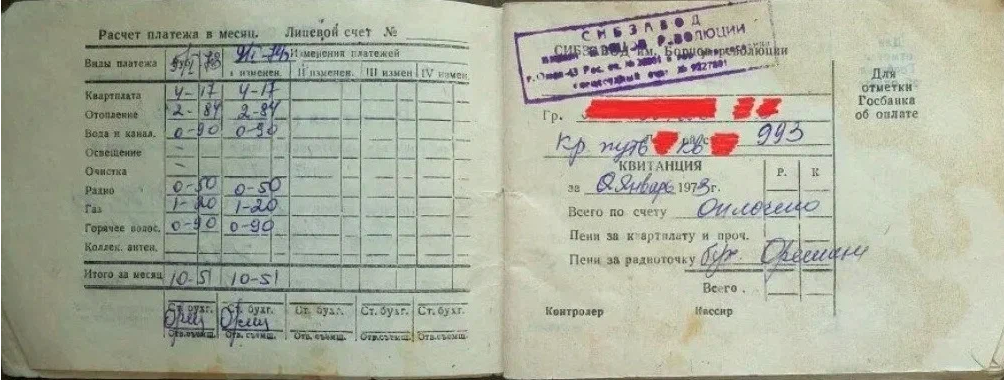 Расчет платежа в месяц. Лицевой счет №
Виды платежа
Измерения платежей
I изменен. II изменен. III измен IV измен.
Квартплата 4-17 4-17
Отопление 2-84 2-84
Вода и канал. 0-90 0-90
Освещение –
Очистка –
Радио 0-50 0-50
Газ 1-20 1-20
Горячее водос. 0-90 0-90
Коллек. антен.
Итого за месяц 10-51 10-51
Ст. бухг. Ст. бухг. Ст. бухг. Ст. бухг. Ст. бухг.
Отв.съемщ. Отв.съемщ. Отв.съемщ. Отв.съемщ. Отв.съемщ.
СИБЗАВОД
РЕВОЛЮЦИИ
СИБЗАВОД им. Борцов революции
г. Омск-43 Рас. сч. №
Для
отметки
Госбанка
об оплате
Гр.
993
Кр. путь кв
КВИТАНЦИЯ Р. К
за Январь 1973г.
Всего по счету Оплочено
Пени за квартплату и проч.
Пени за радиоточку бух.
Всего .
Контролер Кассир